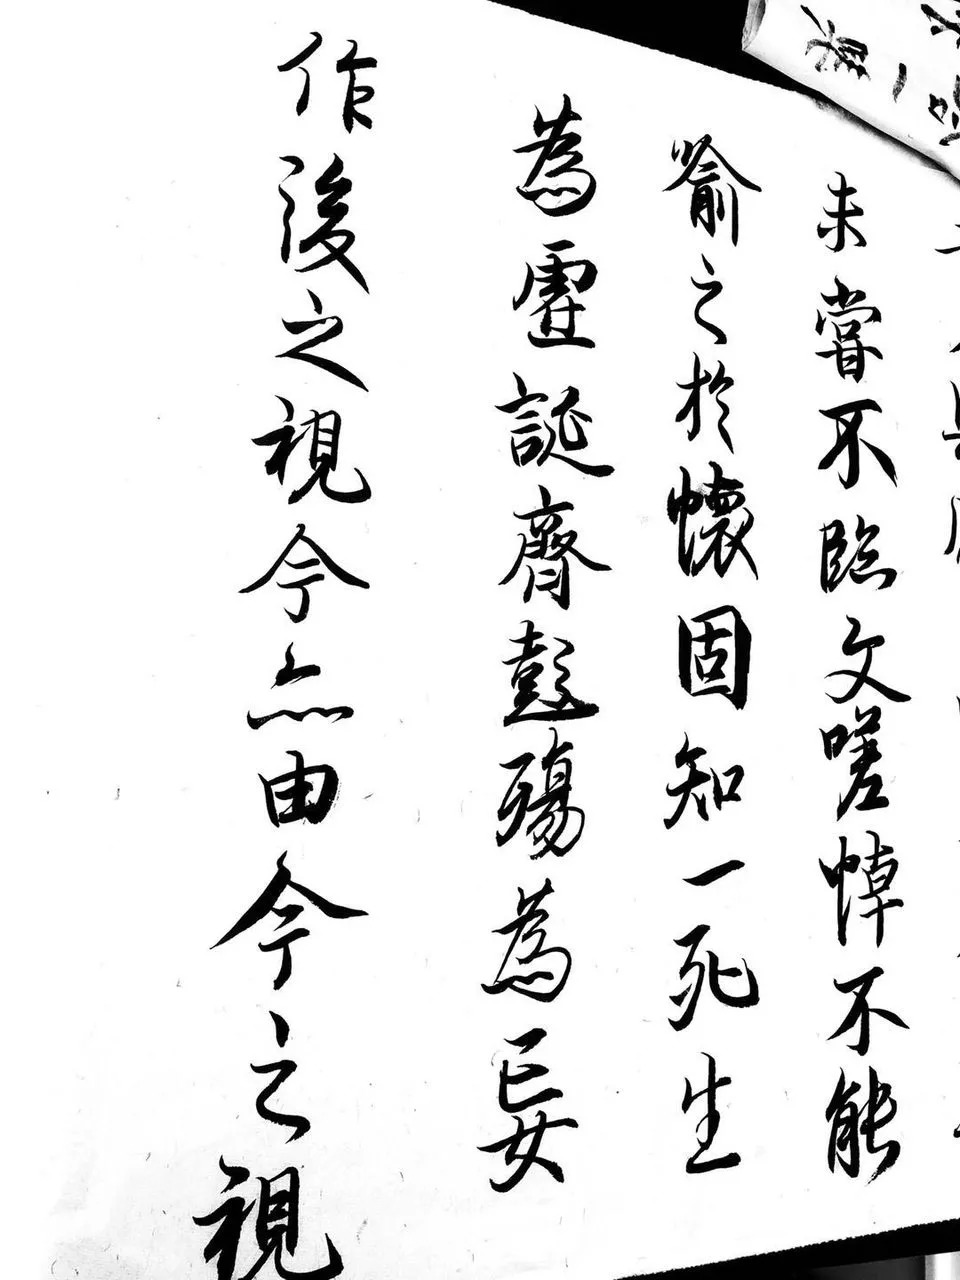 未嘗不臨文嗟悼不能
喻之於懷固知一死生
為虛誕齊彭殤為妄
作後之視今亦由今之視